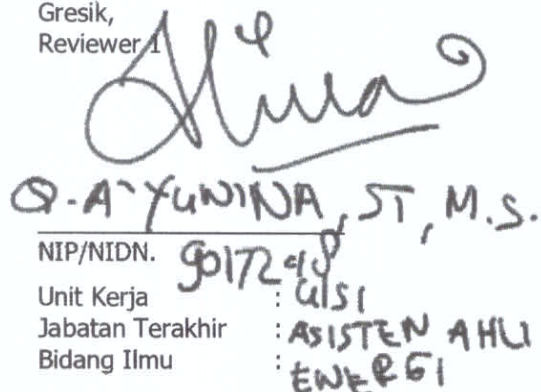 Gresik,
Reviewer 1
Q. A'YUNINA, ST, M.S.
NIP/NIDN. 9017248
Unit Kerja : UISI
Jabatan Terakhir : ASISTEN AHLI
Bidang Ilmu : ENERGI